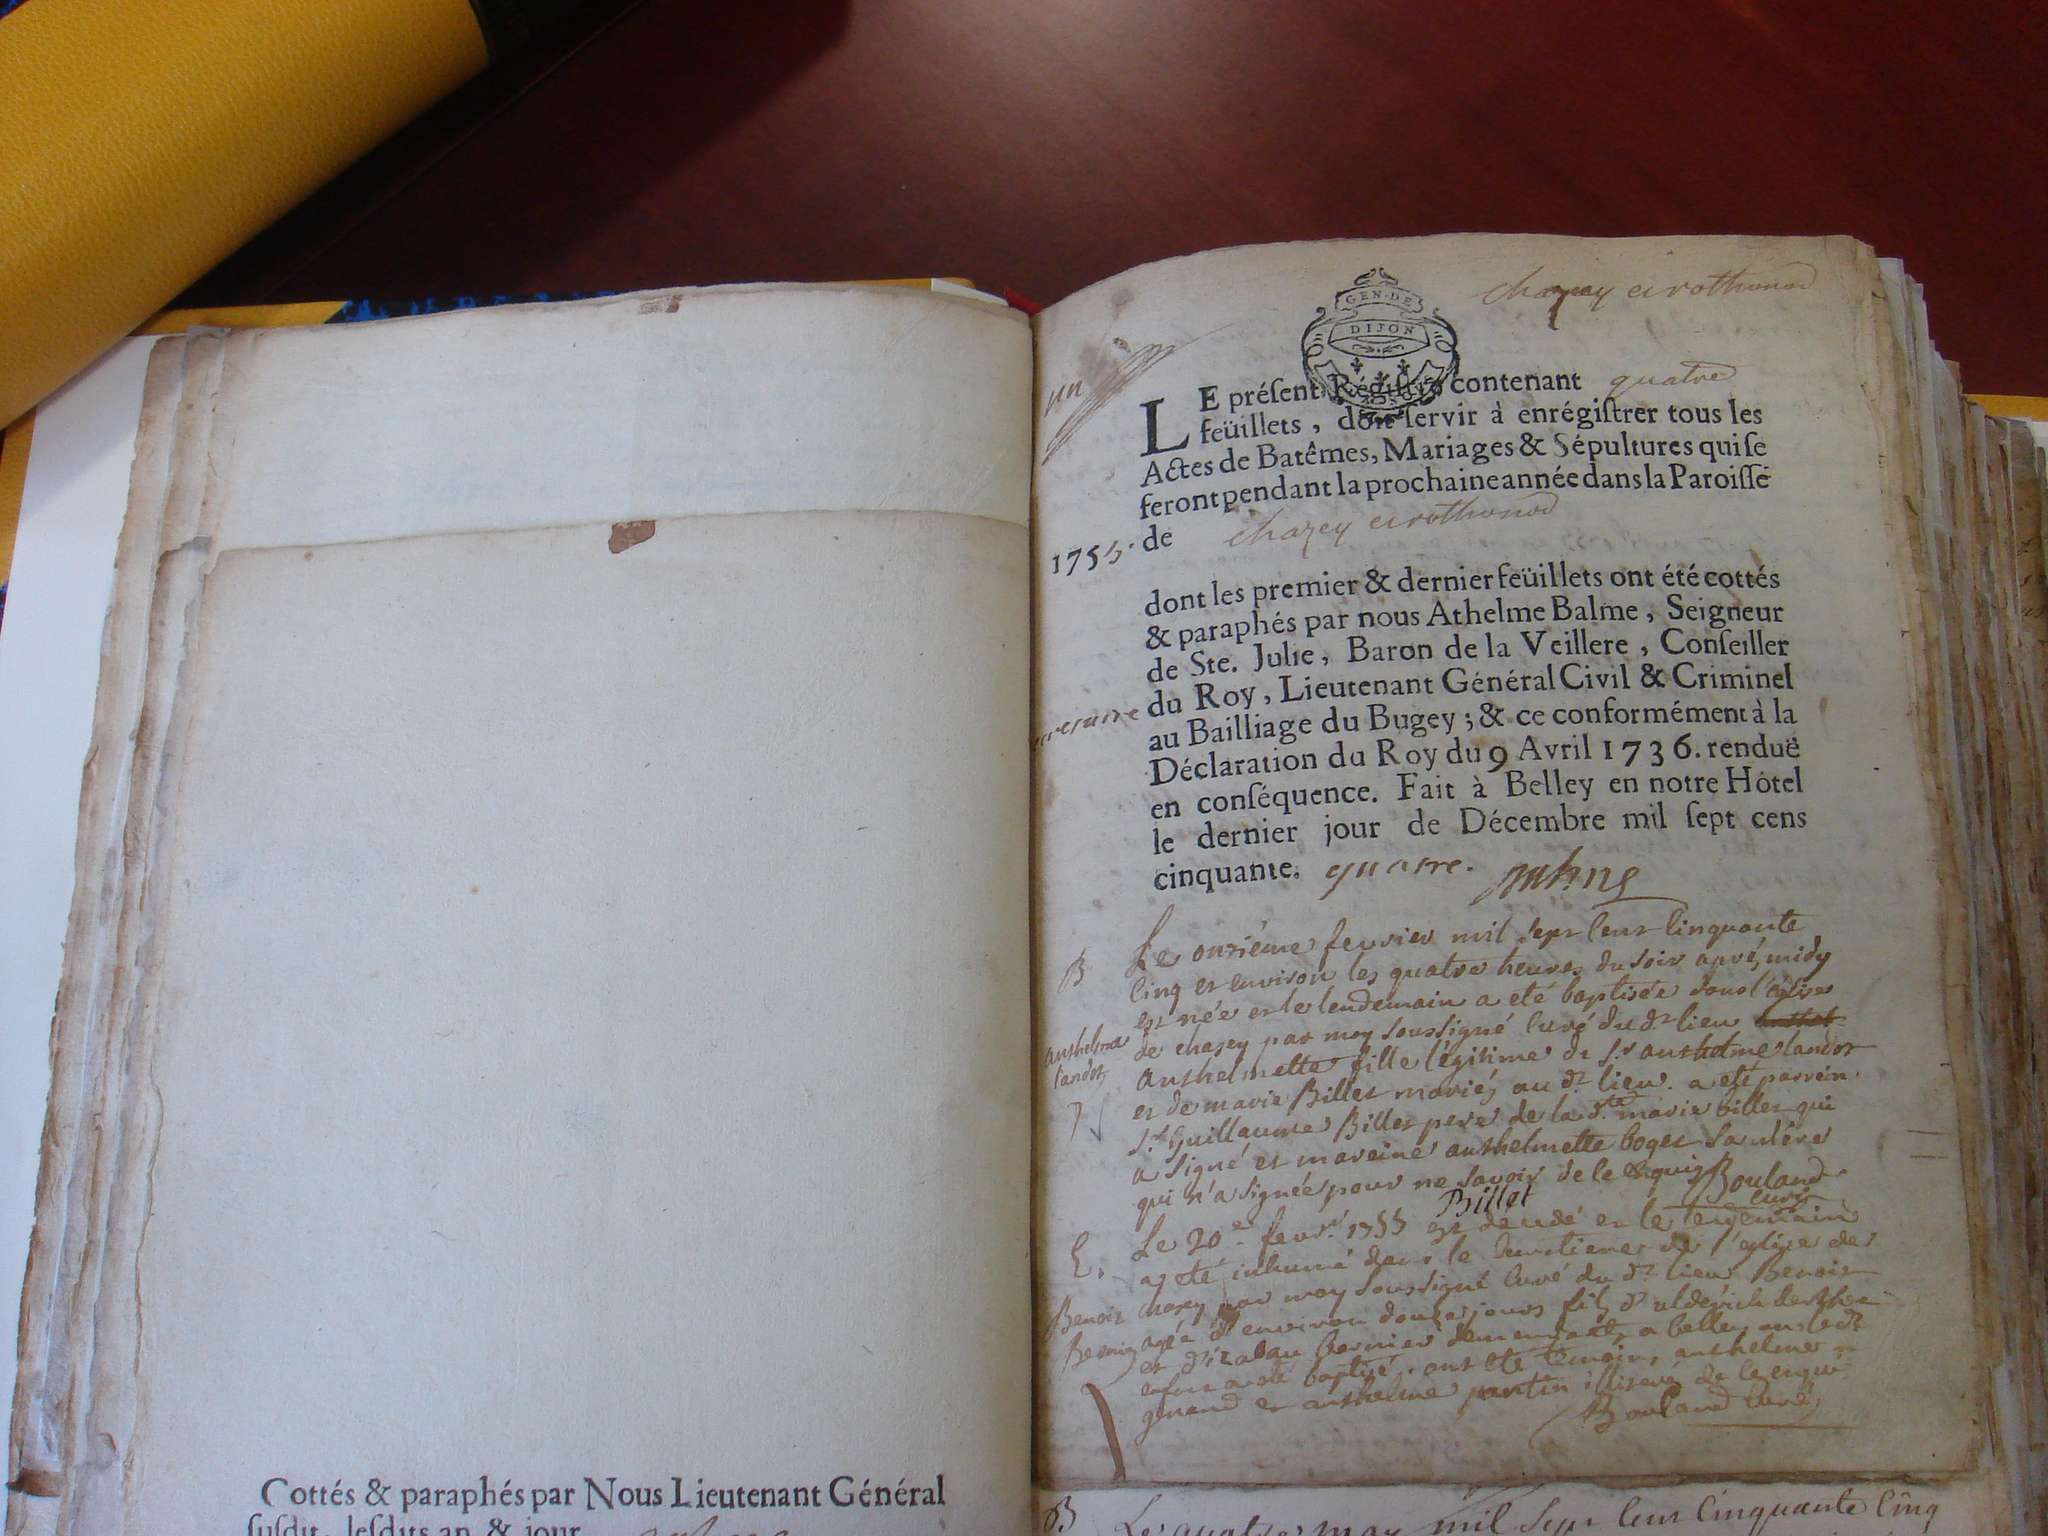 Cottés & paraphés par Nous Lieutenant Général
susdit, lesdits an & jour
chazey et rothonod
GEN·DE
DIJON
un
LE présent Régistre contenant quatre
feüillets, doit servir à enrégistrer tous les
Actes de Batêmes, Mariages & Sépultures qui se
feront pendant la prochaine année dans la Paroisse
de chazey et rothonod
1755.
dont les premier & dernier feüillets ont été cottés
& paraphés par nous Athelme Balme, Seigneur
de Ste. Julie, Baron de la Veillere, Conseiller
du Roy, Lieutenant Général Civil & Criminel
au Bailliage du Bugey; & ce conformément à la
Déclaration du Roy du 9 Avril 1736. renduë
en conséquence. Fait à Belley en notre Hôtel
le dernier jour de Décembre mil sept cens
cinquante. quatre.
B
Le onziéme fevrier mil sept cent cinquante
cinq et environ les quatre heures du soir aprés midy
est née et le lendemain a eté baptisée dans l'église
de chasey par moy soussigné curé du dt lieu
anthelmette fille légitime de sr anthelme landoz
et de marie Billet mariés au dt lieu. a eté parrein
sr Guillaume Billet pere de la dte marie billet qui
a signé et mareine anthelmette boget sa mére
qui n'a signée pour ne savoir de le enquis Bouland
curé
Billet
Le 20e fevr. 1755 est décédé et le lendemain
a eté inhumé dans le cimetiere de l'eglise de
chasey par moy soussigné curé du dt lieu Benoit
agé d'environ douze jours fils d'ulderich
et d'izabau bernier demeurants a belley
enfant a eté baptisé. ont eté témoins anthelme
genand et anthelme pontin illiteré de le enquis
Bouland curé
B
Le quatre may mil sept cent cinquante cinq